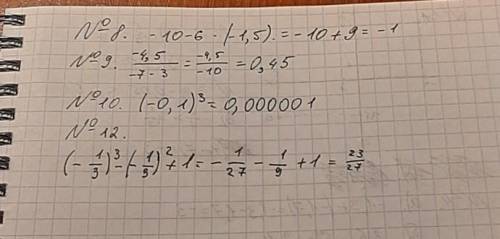 №8. -10-6·(-1,5).=-10+9=-1
№9. \frac{-4,5}{-7-3}=\frac{-4,5}{-10}=0,45
№10. (-0,1)³=0,000001
№12.
(-\frac{1}{3})³-(-\frac{1}{3})²+1=-\frac{1}{27}-\frac{1}{9}+1=\frac{23}{27}